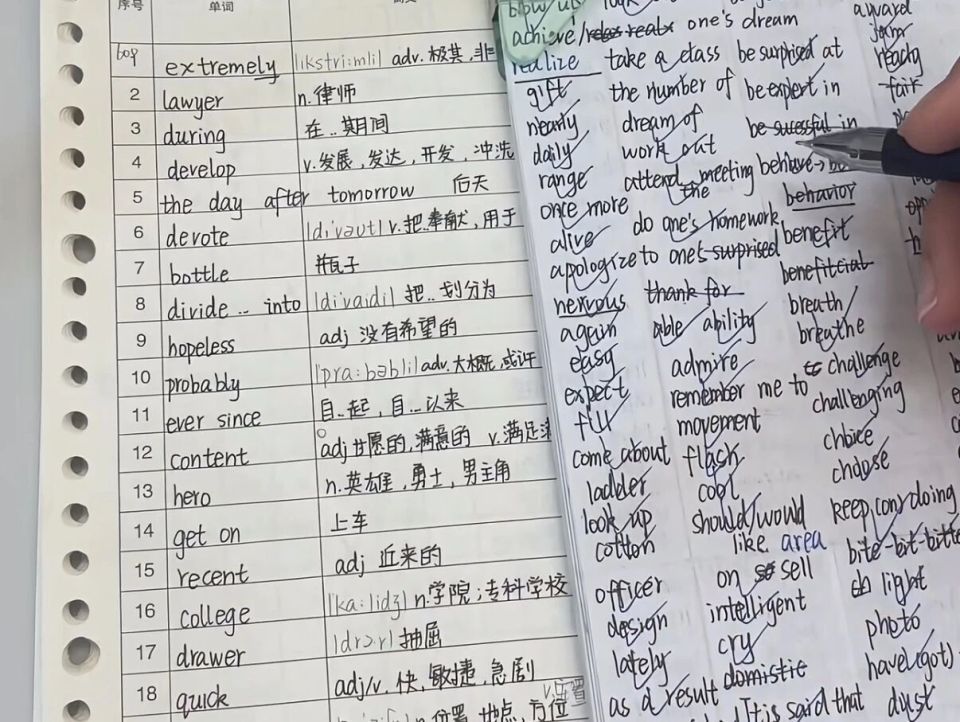 序号 单词
extremely |ikstri:mli| adv. 极其,非
2 lawyer n.律师
3 during 在..期间
4 develop v.发展,发达,开发,冲洗
5 the day after tomorrow 后天
6 devote |di'vəut| v.把..奉献,用于
7 bottle 瓶子
8 divide .. into |di'vaidi| 把..划分为
9 hopeless adj 没有希望的
10 probably |'pra:bəbli| adv.大概,或许
11 ever since 自..起,自...以来
12 content adj 甘愿的,满意的 v.满足
13 hero n.英雄,勇士,男主角
14 get on 上车
15 recent adj 近来的
16 college |'ka:lidʒ| n.学院;专科学校
17 drawer |drɔ:r| 抽屉
18 quick adj/v. 快,敏捷,急剧
位置 地点,方位
blow up
achieve/ one's dream award
realize take a class be surprised at
gift the number of be expert in
nearly dream of be sucessful in
daily work out
range attend the meeting behave→
once more do one's homework behavior
alive benefit
apologize to one's surprised benefitcial
nervous thank for breath
again able ability breathe
easy admire challenge
expect remember me to challenging
fill movement choice
come about flash choose
ladder cool
look up should/would keep(on) doing
cotton like area bite-bit-bitte
officer on sell light
design intelligent photo
lately cry have(got)
as a result domistic dust
It is said that